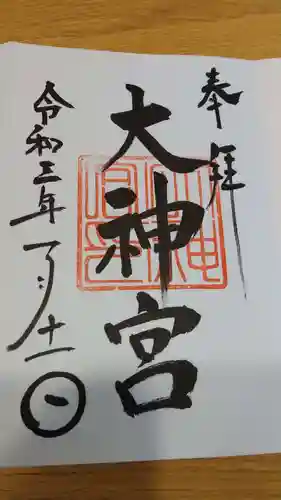 奉拝
大神宮
令和三年一月十一日